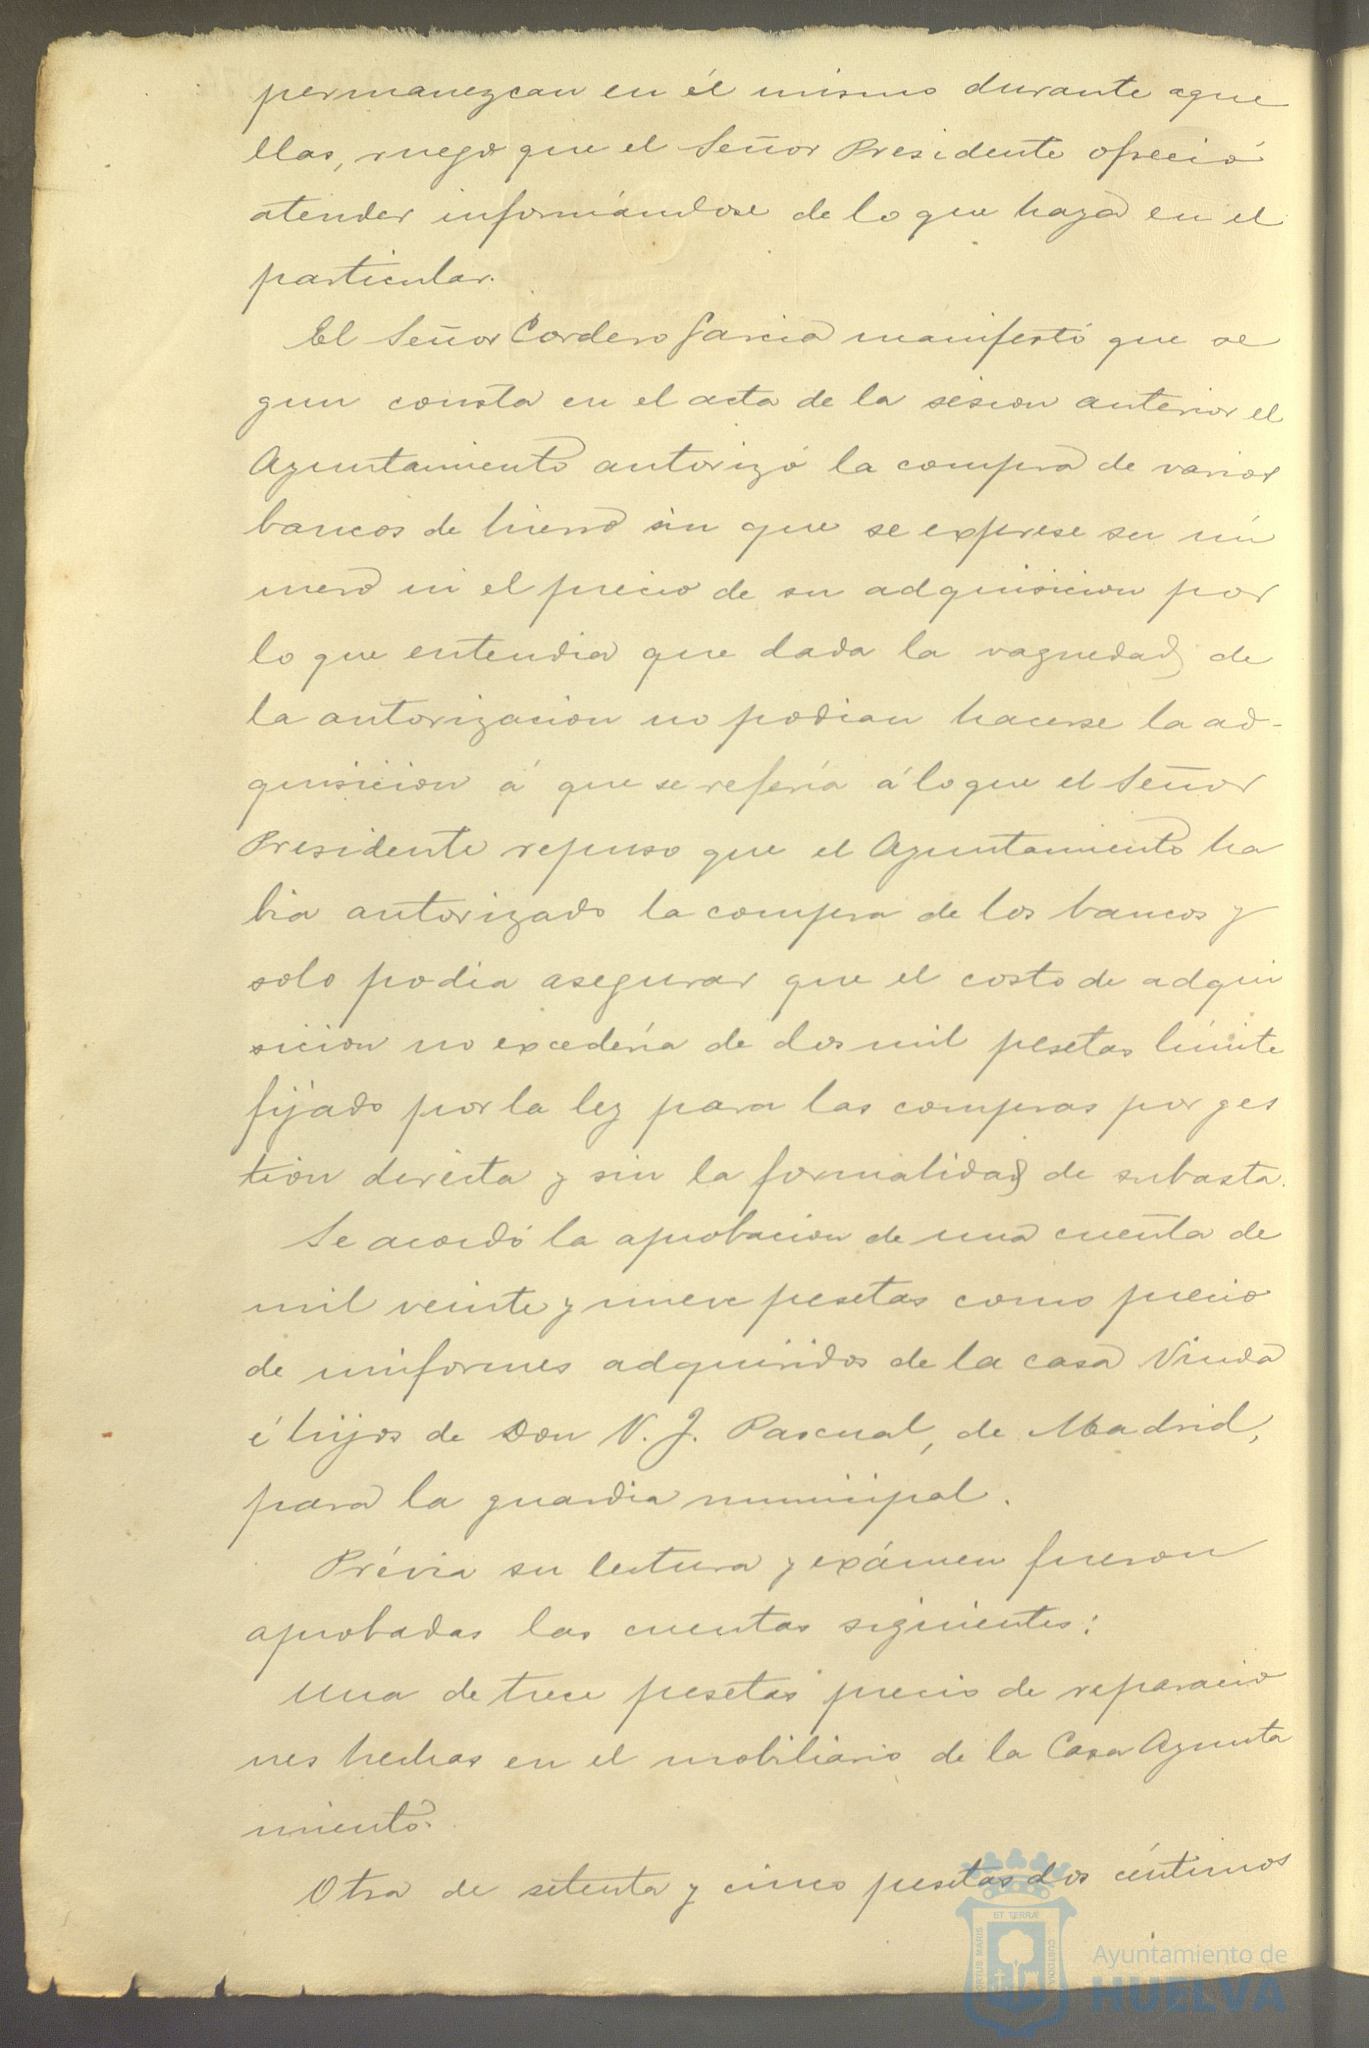 permanezcan en él mismo durante aque
llas, ruego que el Señor Presidente ofreció
atender informándose de lo que haya en el
particular.
El Señor Cordero Garcia manifestó que se
gun consta en el acta de la sesion anterior el
Ayuntamiento autorizó la compra de varios
bancos de hierro sin que se exprese su nú
mero ni el precio de su adquisicion por
lo que entendia que dada la vaguedad de
la autorizacion no podian hacerse la ad-
quisicion á que se refería á lo que el Señor
Presidente repuso que el Ayuntamiento ha
bia autorizado la compra de los bancos y
solo podia asegurar que el costo de adqui
sicion no excedería de dos mil pesetas límite
fijado por la ley para las compras por ges
tion directa y sin la formalidad de subasta.
Se acordó la aprobacion de una cuenta de
mil veinte y nueve pesetas como precio
de uniformes adquiridos de la casa Viuda
é hijos de Don V. J. Pascual, de Madrid,
para la guardia municipal.
Prévia su lectura y exámen fueron
aprobadas las cuentas siguientes:
Una de trece pesetas precio de reparacio
nes hechas en el mobiliario de la Casa Ayunta
miento.
Otra de setenta y cinco pesetas dos céntimos
PORTUS MARIS ET TERRÆ CUSTODIA
Ayuntamiento de
HUELVA